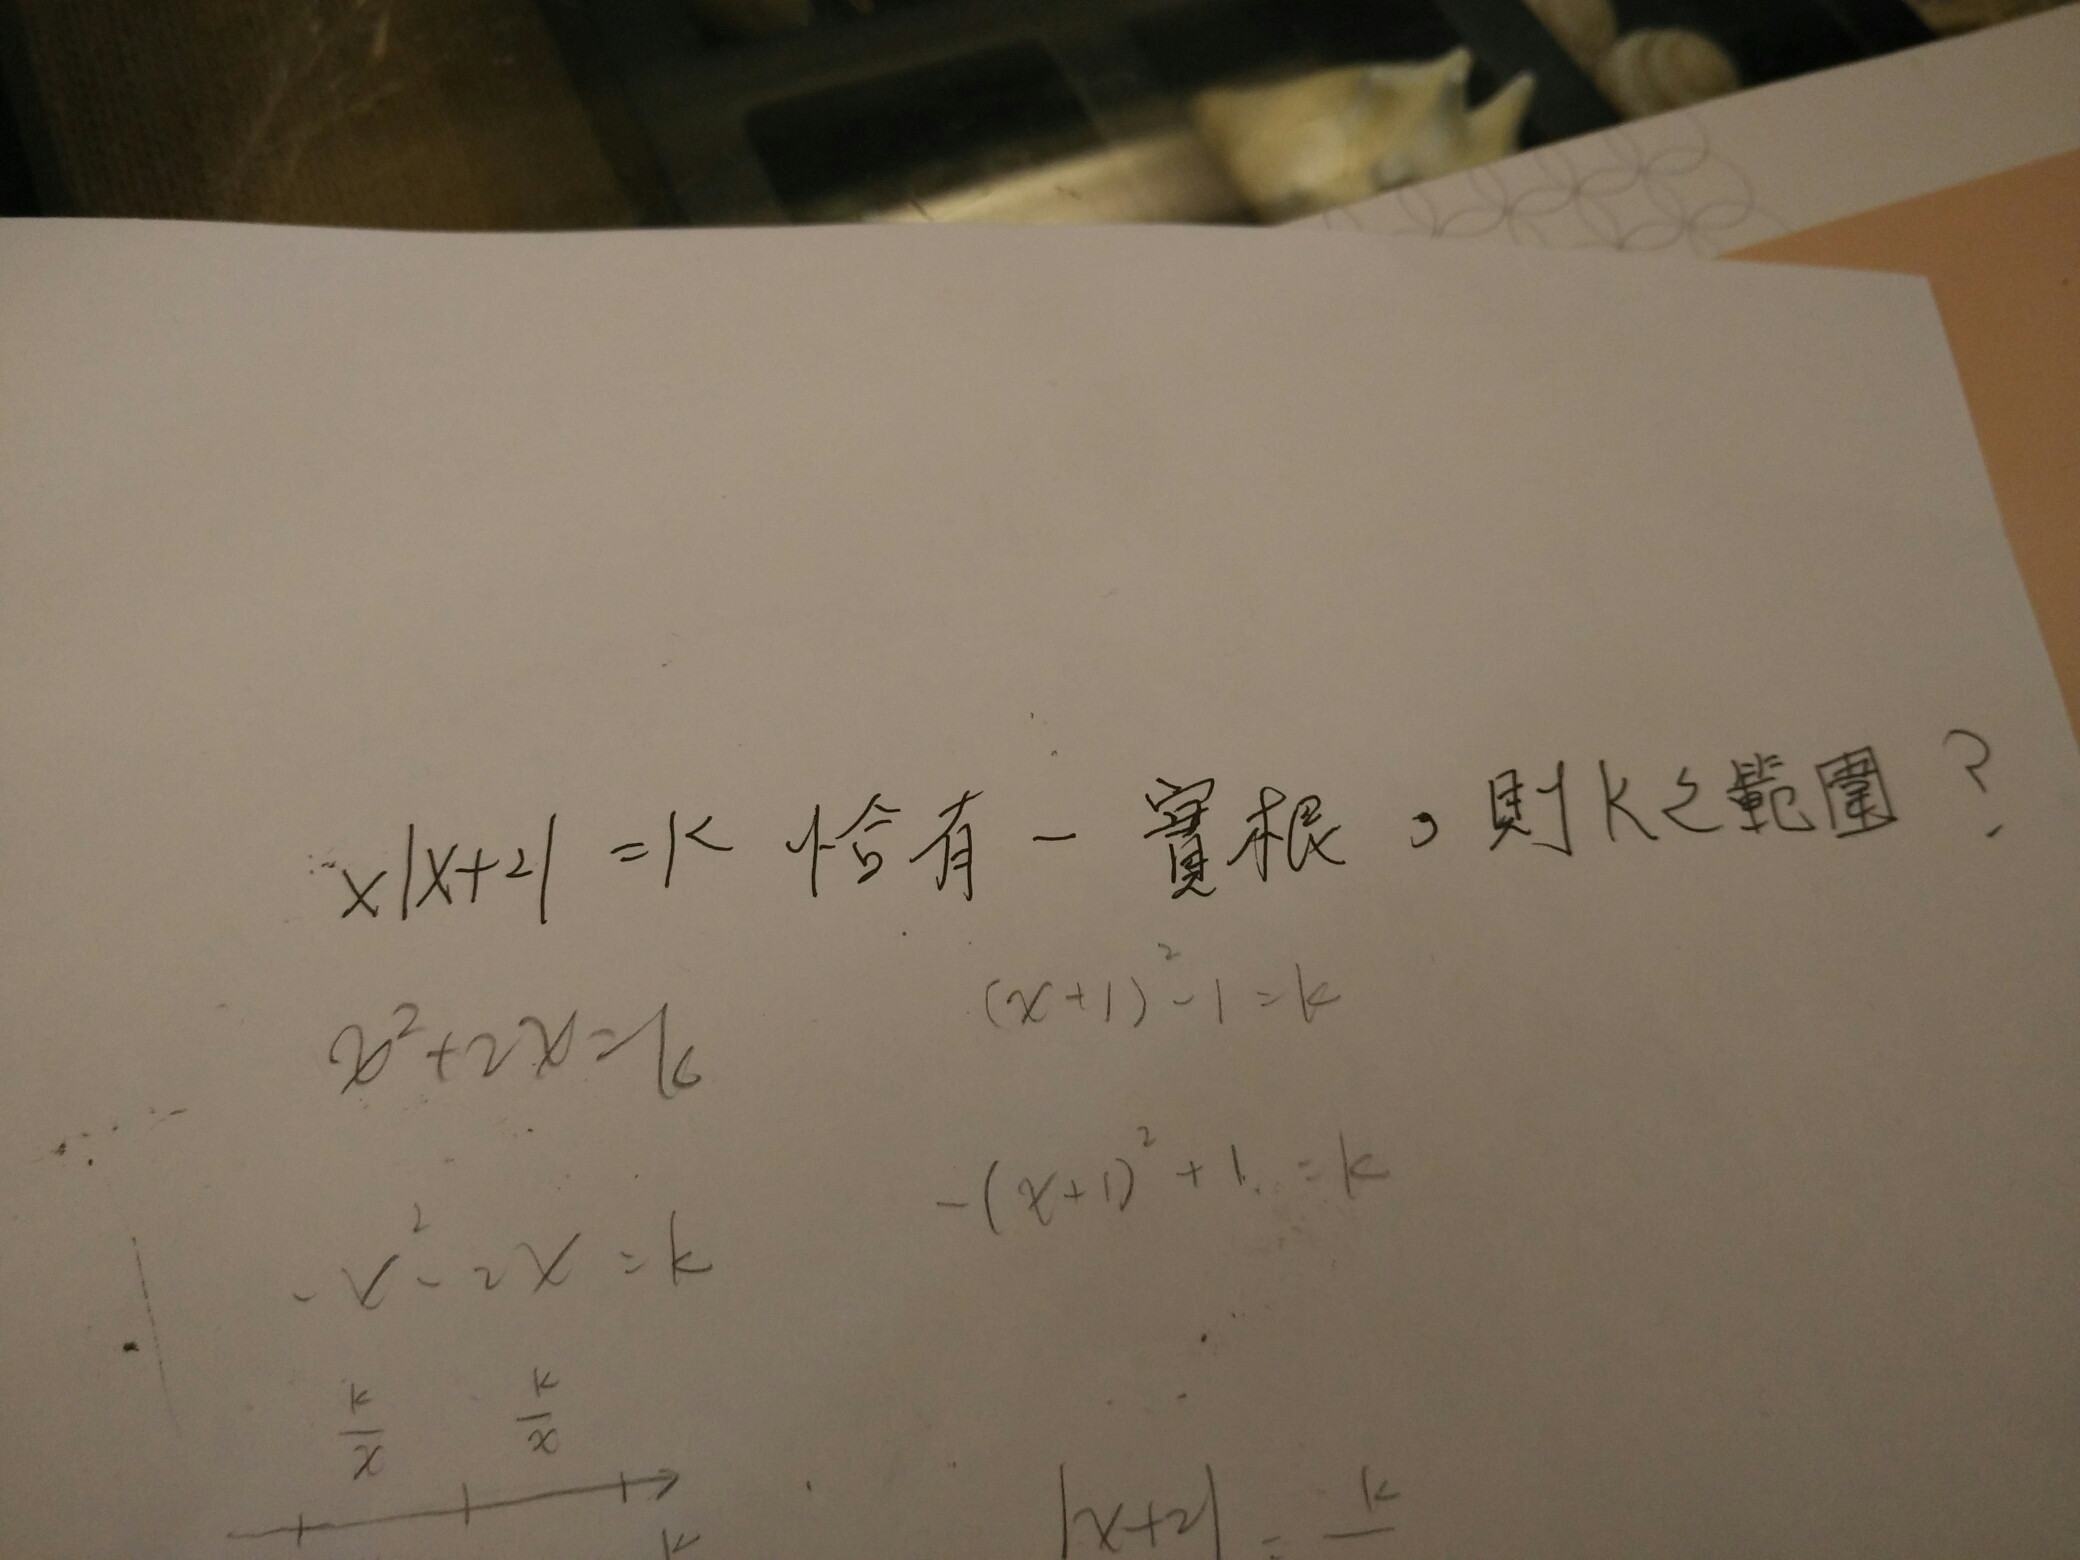 x|x+2| = k 恰有一實根，則k之範圍？
x²+2x=k
(x+1)²-1=k
-x²-2x=k
-(x+1)²+1=k
k/x k/x
k
|x+2| = k